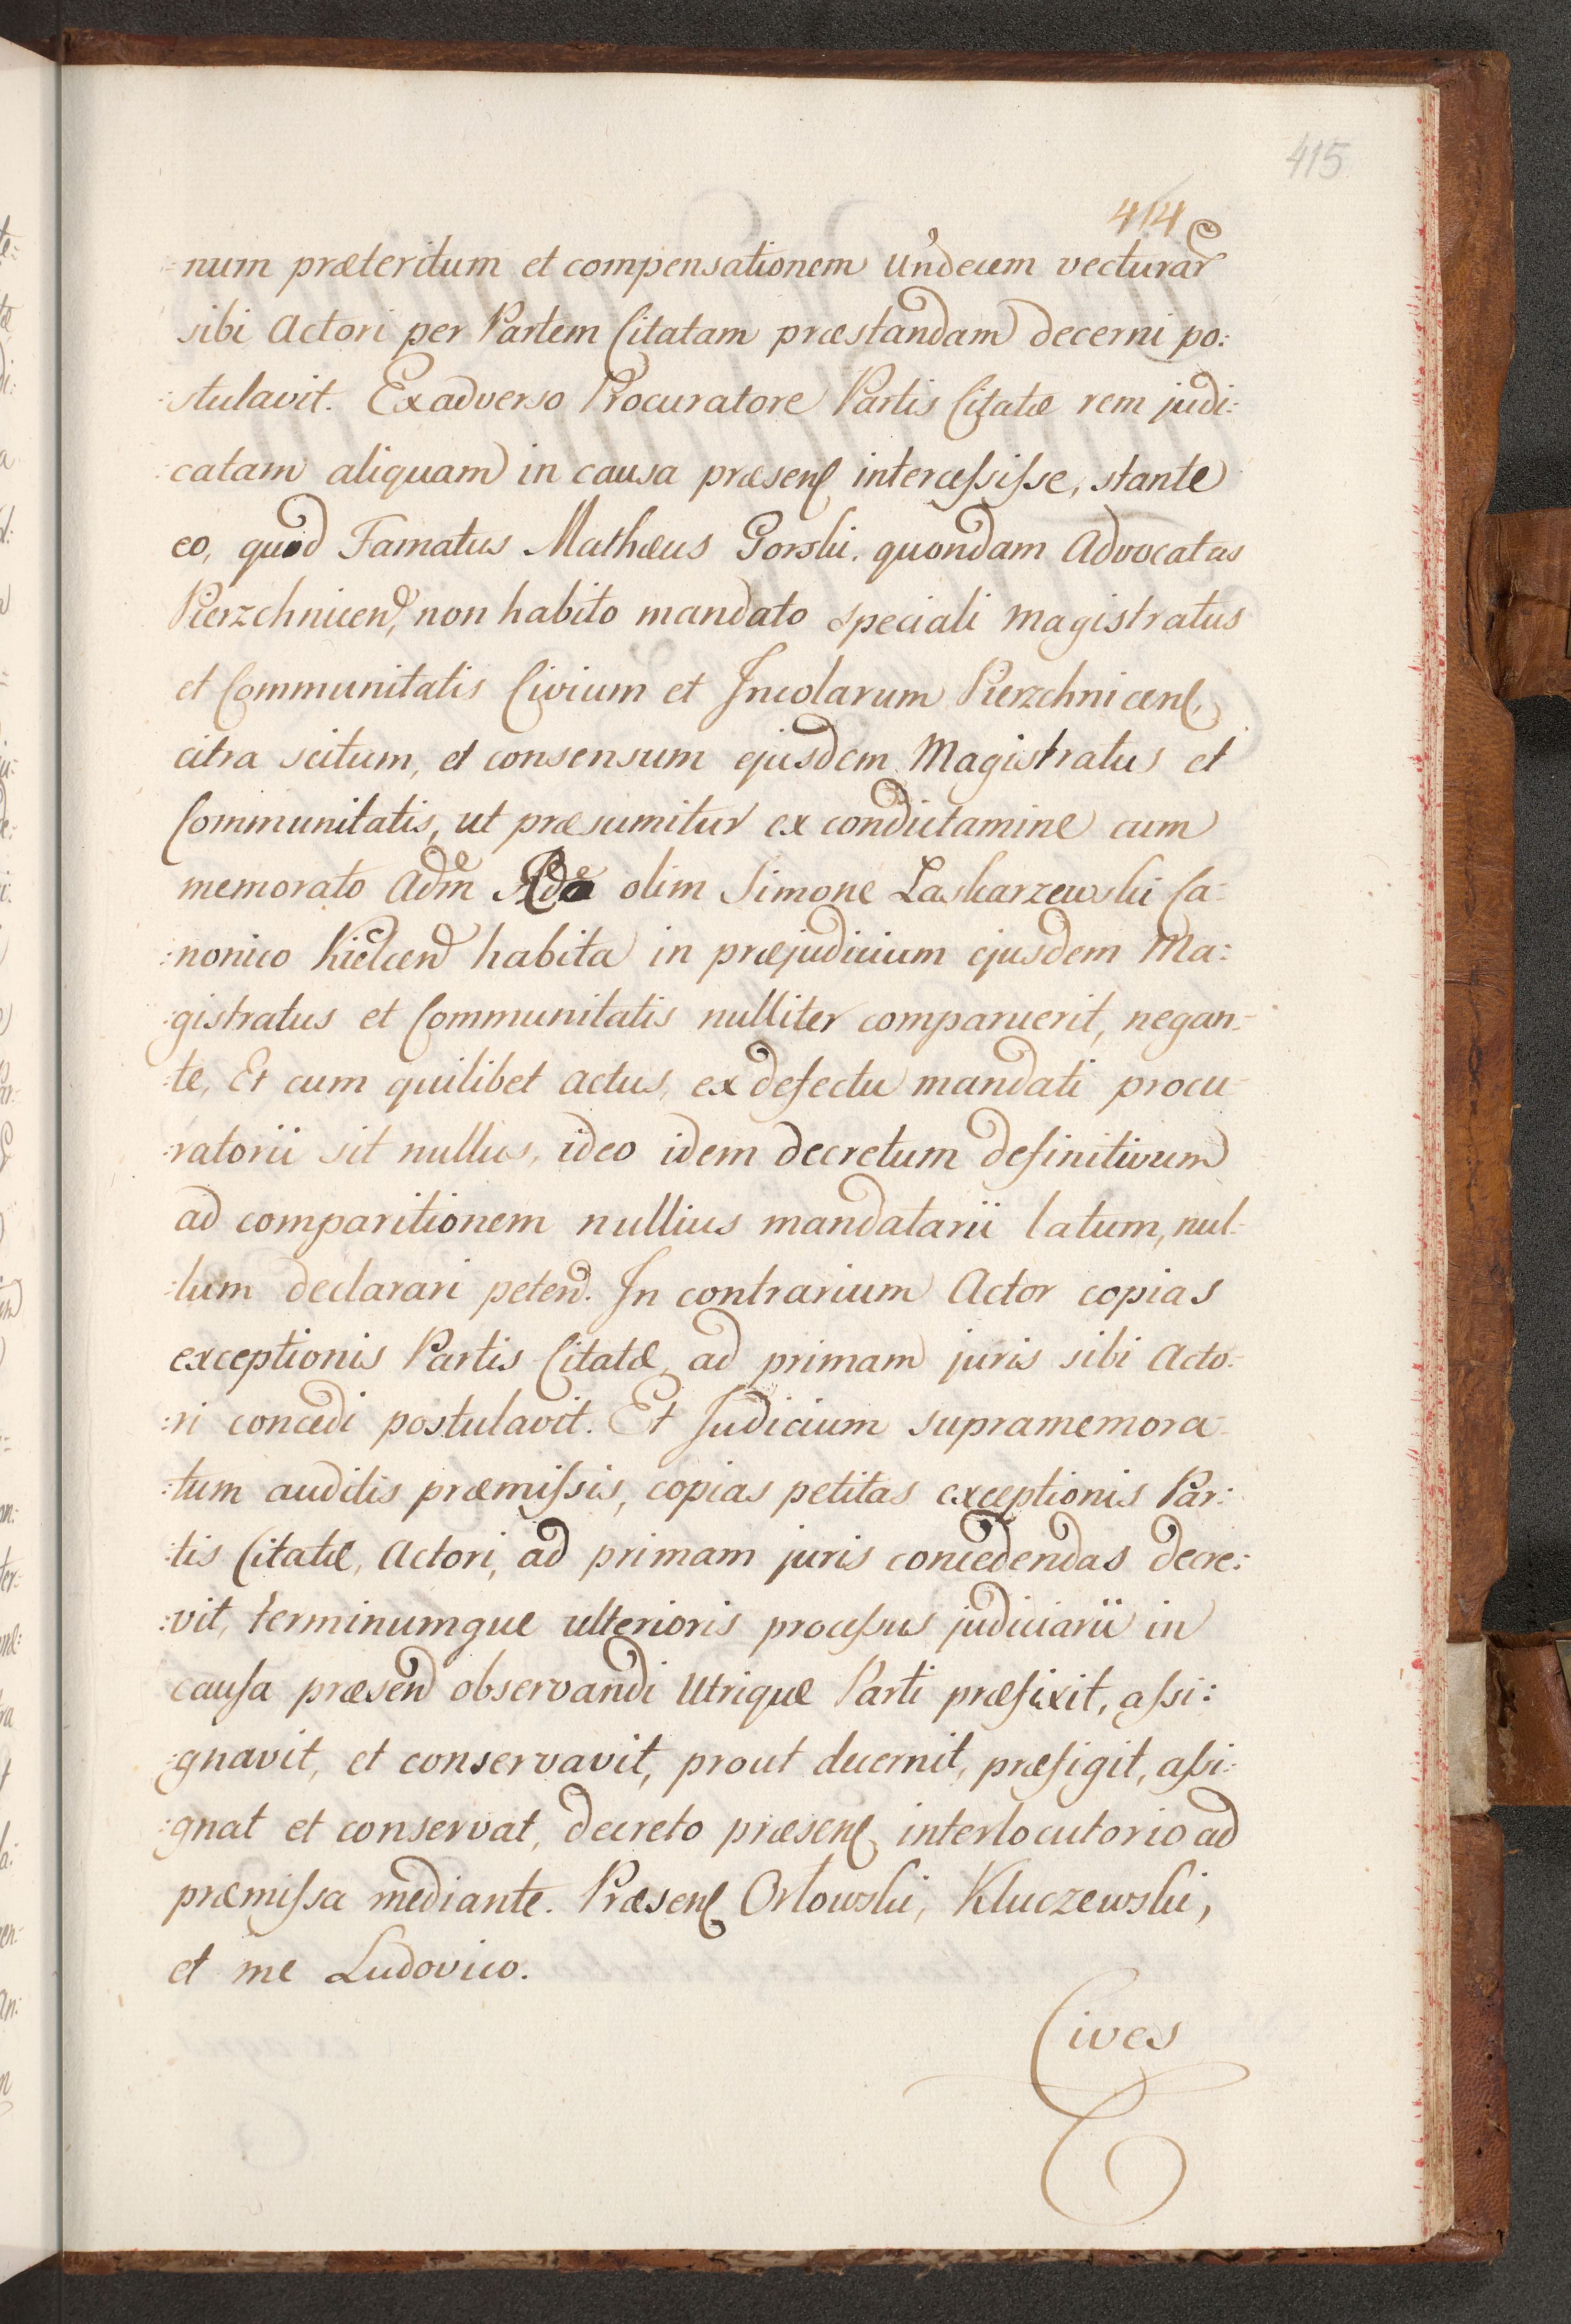 415
414
=num præteritum et compensationem undecem vecturar
sibi Actori per Partem Citatam præstandam decerni po:
:stulavit. Exadverso Procuratore Partis Citatæ rem judi:
:catam aliquam in causa præsen intercessisse, stante
eo, quod Famatus Mathæus Gorski quondam Advocatus
Pierzchnicen, non habito mandato speciali Magistratus
et Communitatis Civium et Incolarum Pierzchnicen,
citra scitum, et consensum ejusdem Magistratus et
Communitatis, ut præsumitur ex condictamine cum
memorato Adm Rdo olim Simone Laskarzewski Ca=
:nonico Kielcen habita in præjudicium ejusdem Ma:
:gistratus et Communitatis nulliter comparuerit, negan=
:te, Et cum quilibet actus, ex defectu mandati procu=
:ratorii sit nullus, ideo idem decretum definitivum
ad comparitionem nullius mandatarii latum, nul=
:lum declarari peten. In contrarium Actor copias
exceptionis Partis Citatæ, ad primam juris sibi Acto=
:ri concedi postulavit. Et Judicium supramemora=
:tum auditis præmissis, copias petitas exceptionis Par:
:tis Citatæ, Actori, ad primam juris concedendas decre:
:vit, terminumque ulterioris processus judiciarii in
causa præsen observandi Utrique Parti præfixit, assi:
:gnavit, et conservavit, prout decernit, præfigit, assi:
:gnat et conservat, decreto præsen interlocutorio ad
præmissa mediante. Præsen Orłowski, Kluczewski,
et me Ludovico.
Cives